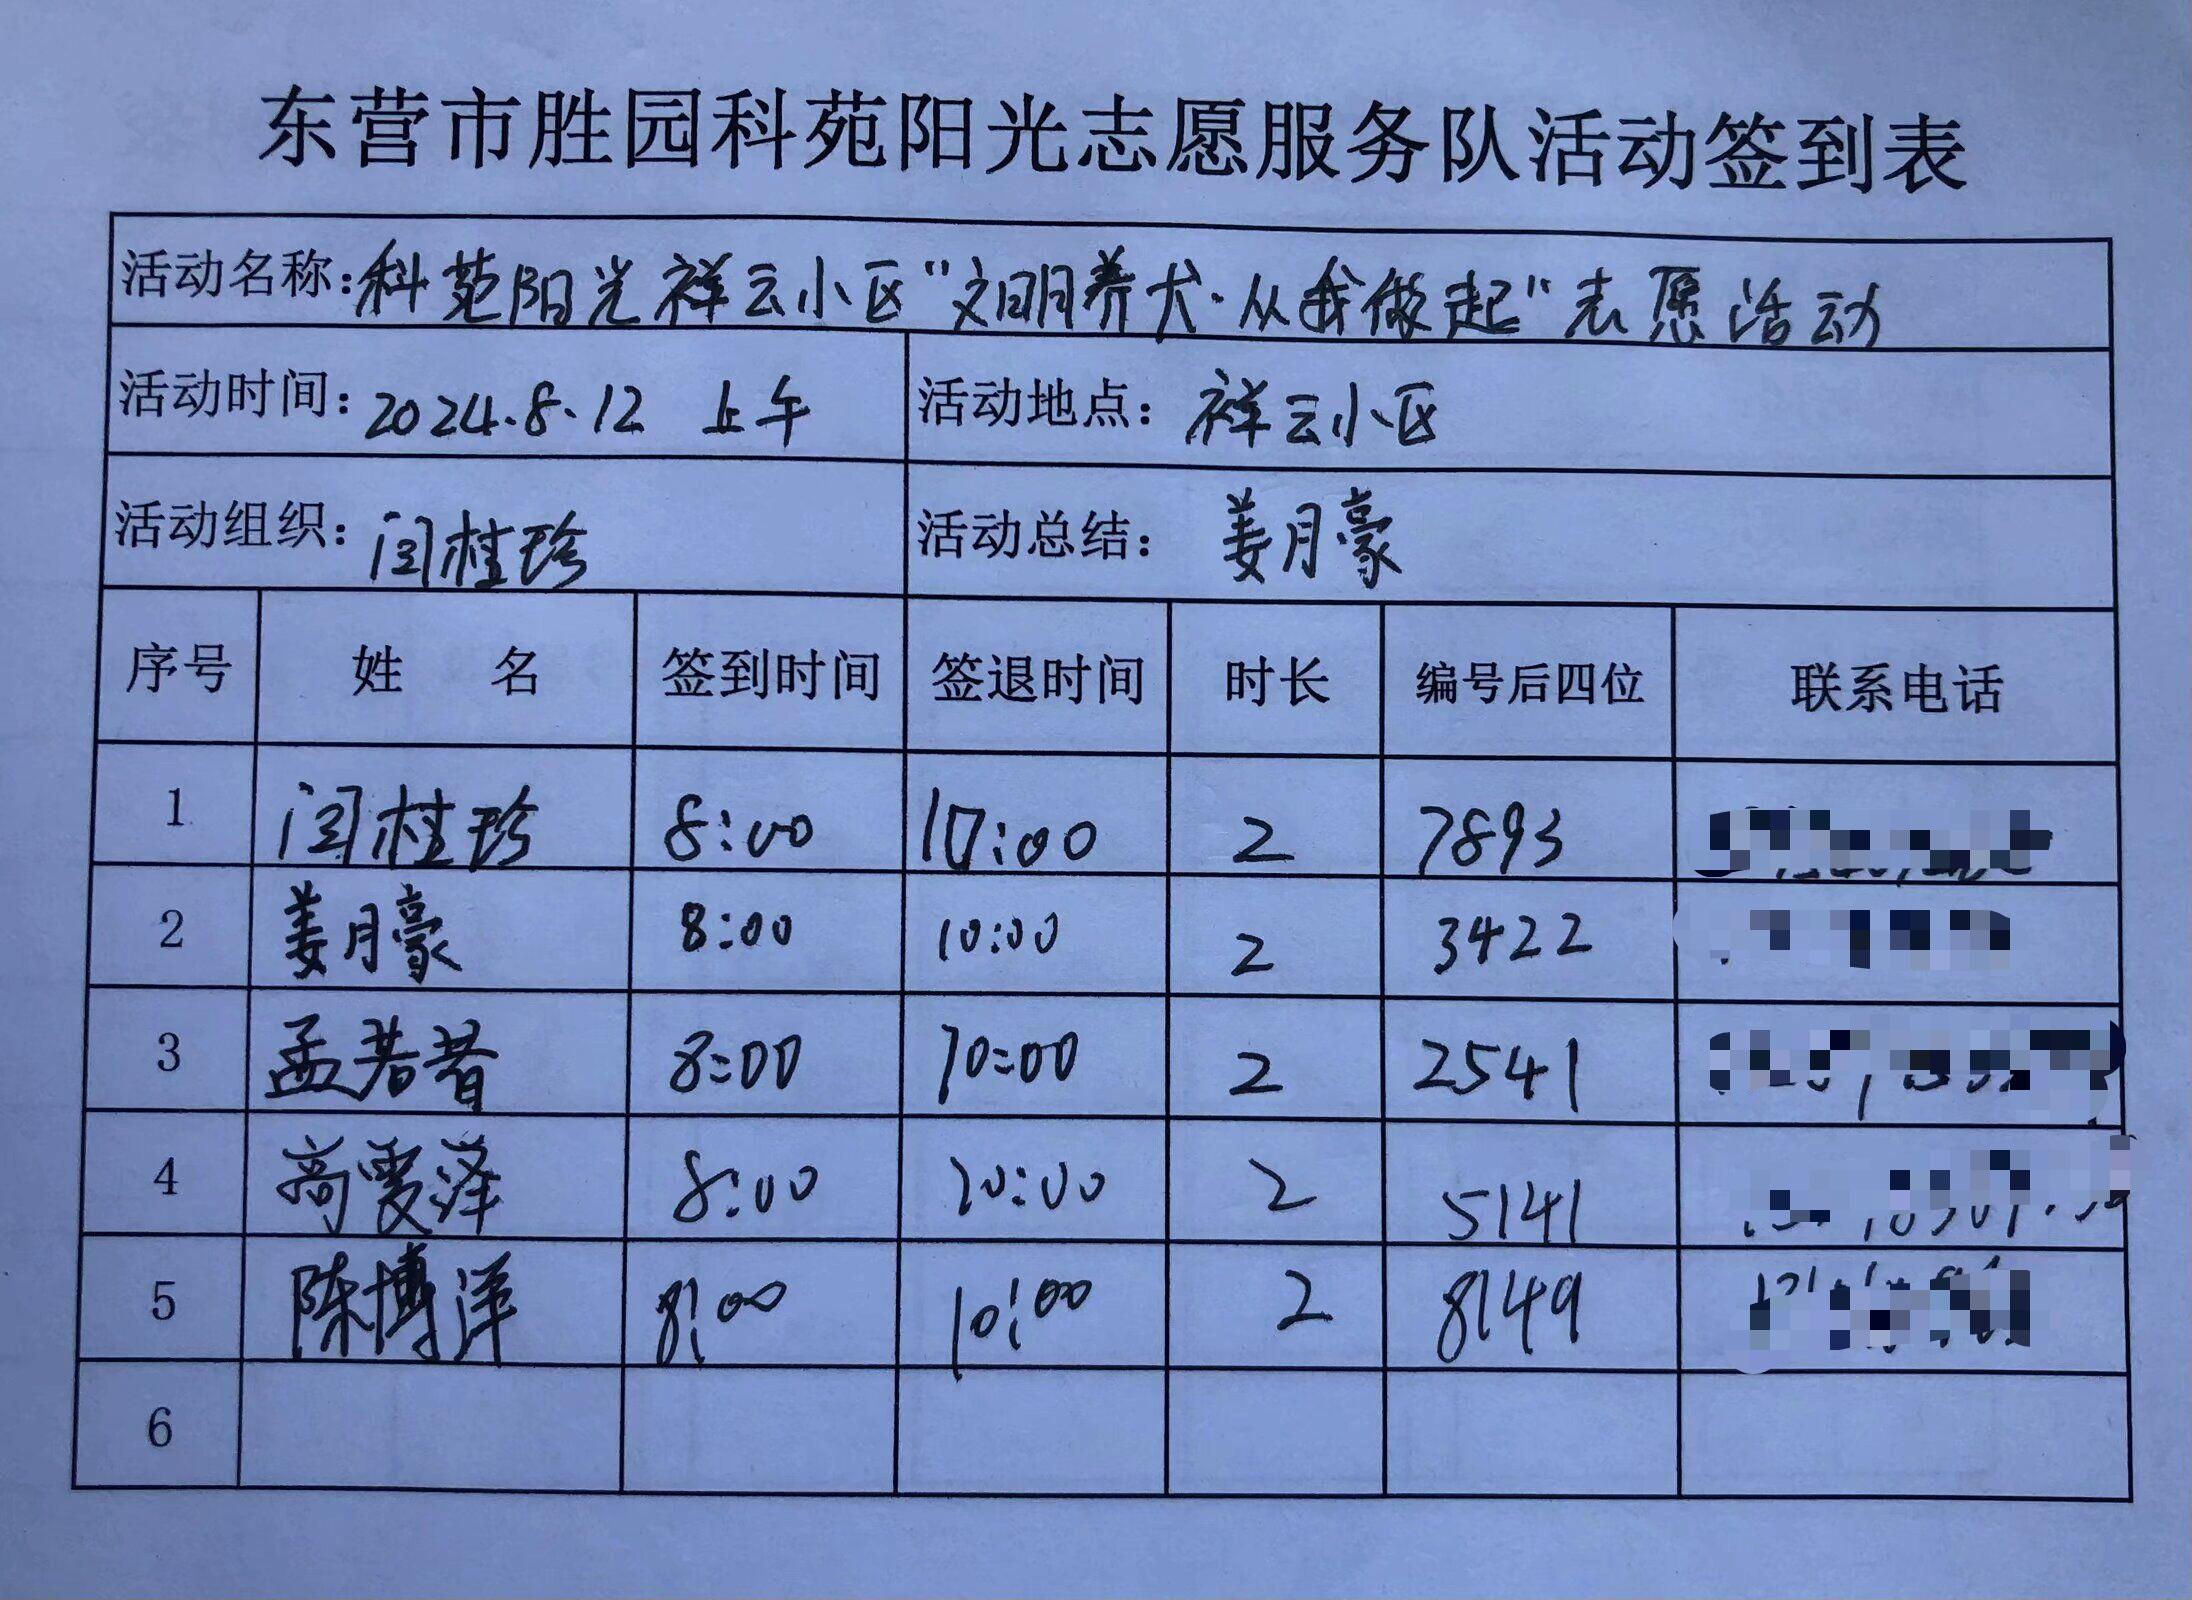 东营市胜园科苑阳光志愿服务队活动签到表
活动名称：科苑阳光祥云小区“文明养犬·从我做起”志愿活动
活动时间：2024.8.12 上午 活动地点：祥云小区
活动组织：闫桂珍 活动总结：姜月豪
序号 姓 名 签到时间 签退时间 时长 编号后四位 联系电话
1 闫桂珍 8:00 10:00 2 7893
2 姜月豪 8:00 10:00 2 3422
3 孟若 8:00 10:00 2 2541
4 高雯泽 8:00 10:00 2 5141
5 陈博洋 8:00 10:00 2 8149
6